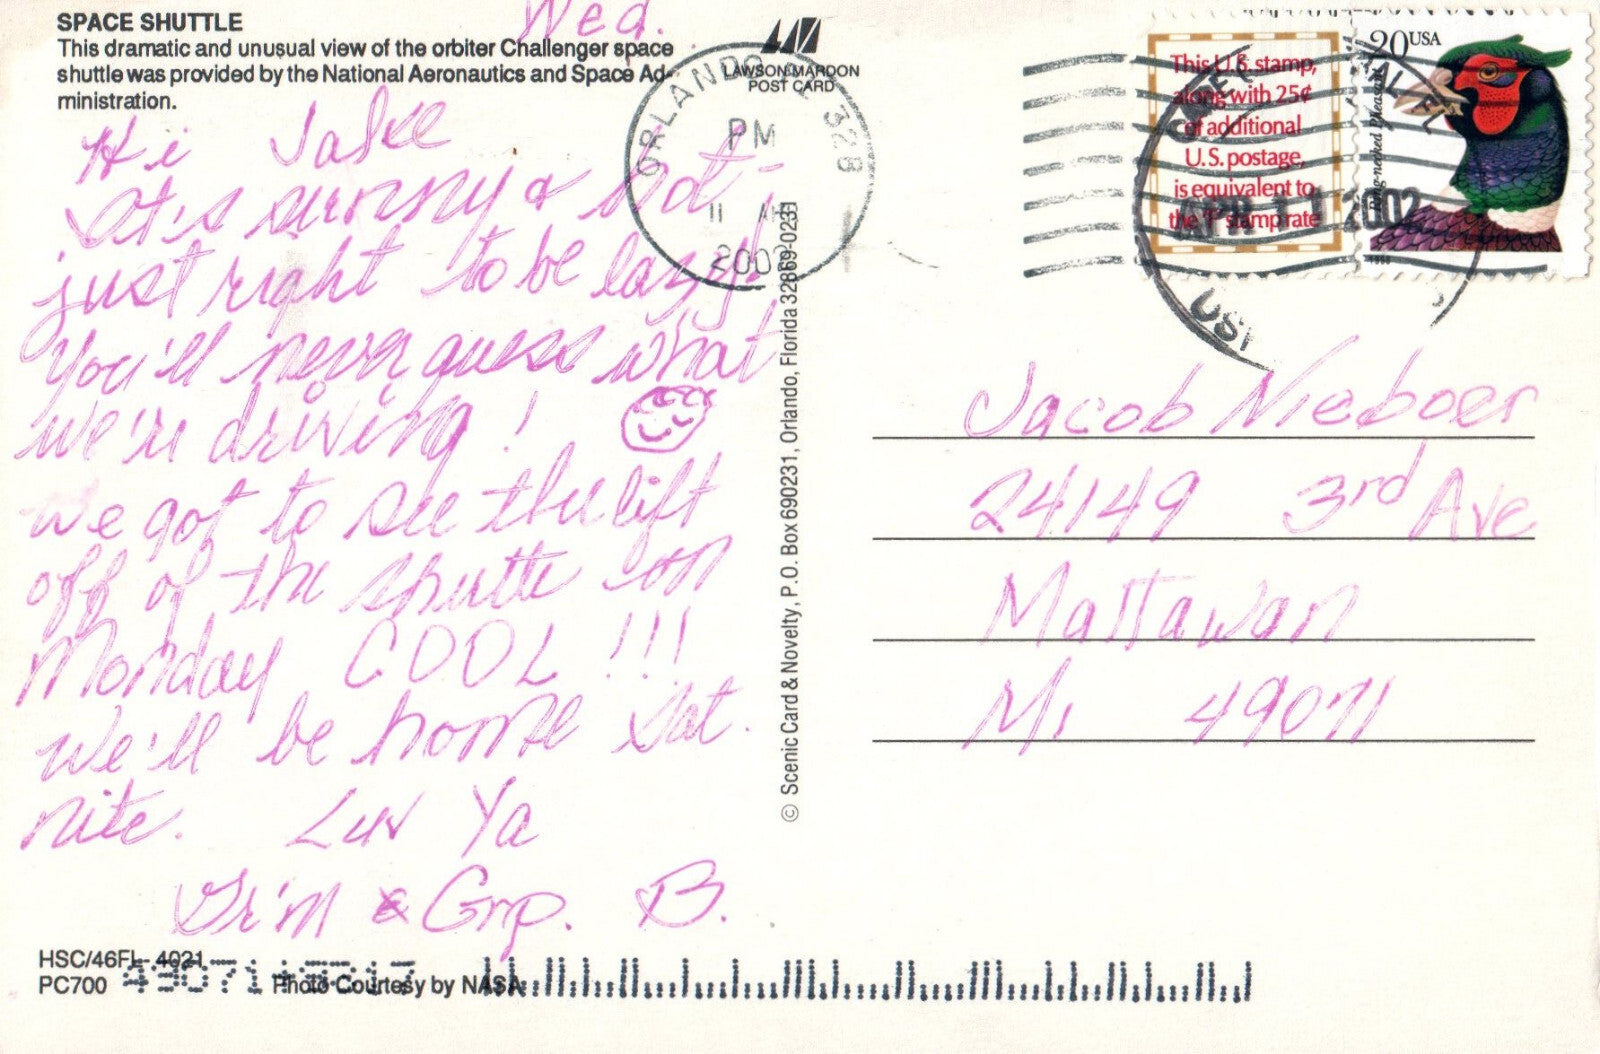 SPACE SHUTTLE
This dramatic and unusual view of the orbiter Challenger space
shuttle was provided by the National Aeronautics and Space Ad-
ministration.
Wed.
Hi Jake
It's sunny & hot -
just right to be lazy!
You'll never guess what
we're driving!
We got to see the lift
off of the shuttle on
Monday COOL !!!
We'll be home Sat.
nite. Luv Ya
Gr'm & Grp. B.
HSC/46FL-4021
PC700
Photo Courtesy by NASA
49071+9717
LAWSON MARDON
POST CARD
ORLANDO FL 328
PM
11 AP
2002
© Scenic Card & Novelty, P.O. Box 690231, Orlando, Florida 32869-0231
This U.S. stamp,
along with 25¢
of additional
U.S. postage,
is equivalent to
the 'F' stamp rate
20USA
Ring-necked Pheasant
APR 11 2002
Jacob Nieboer
24149 3rd Ave
Mattawan
Mi 49071